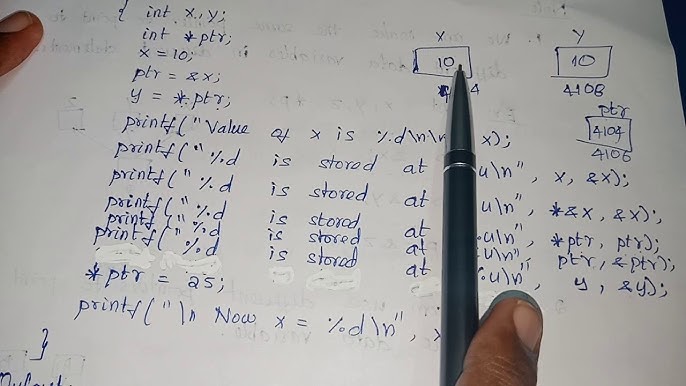 { int x, y;
int *ptr;
x = 10;
ptr = &x;
y = *ptr;
printf("Value of x is %d\n\n x);
printf("%d is stored at u\n", x, &x);
printf("%d is stored at u\n", *&x, &x);
printf("%d is stored at :u\n", *ptr, ptr);
printf("%d is stored at :u\n", ptr, &ptr);
printf("%d is stored at :u\n", y, &y);
*ptr = 25;
printf("\n Now x = %d\n", x
}
X
10
4
Y
10
4108
ptr
4104
4106